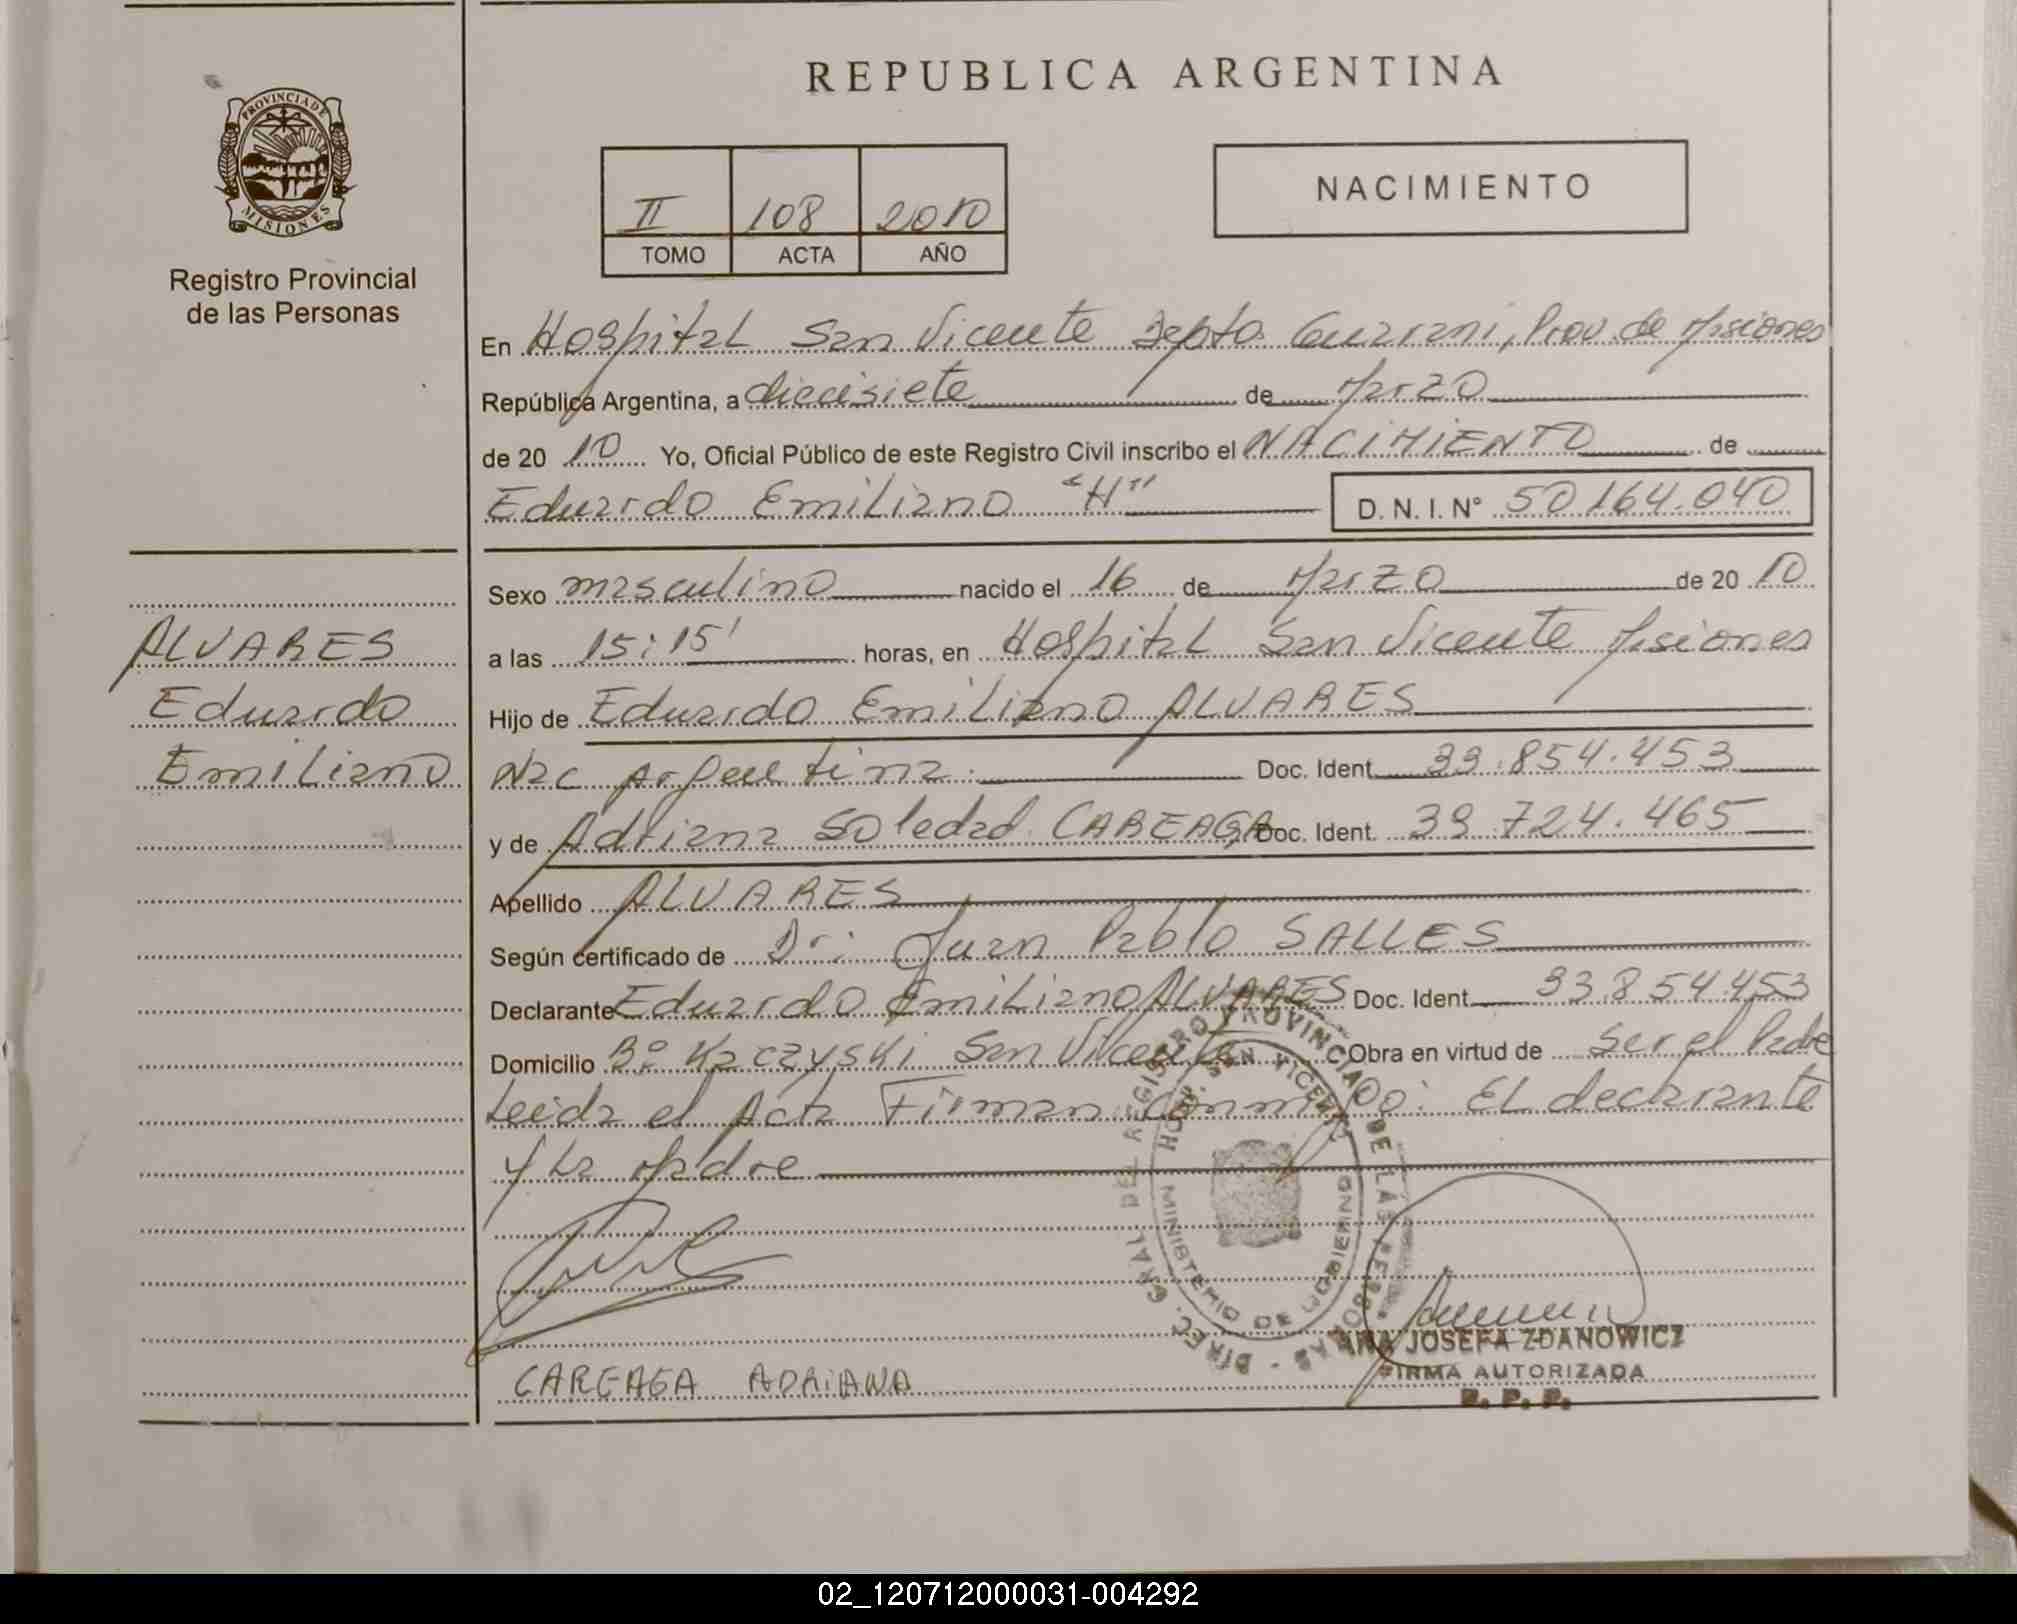 REPUBLICA ARGENTINA
PROVINCIA DE
MISIONES
Registro Provincial
de las Personas
II 108 2010
TOMO ACTA AÑO
NACIMIENTO
En Hospital San Vicente Depto Guarani, Prov. de Misiones
República Argentina, a diecisiete de Marzo
de 20 10 Yo, Oficial Público de este Registro Civil inscribo el NACIMIENTO de
Eduardo Emiliano "H" D. N. I. Nº 50164.040
Sexo masculino nacido el 16 de Marzo de 20 10
ALVARES
Eduardo
Emiliano
a las 15:15' horas, en Hospital San Vicente Misiones
Hijo de Eduardo Emiliano ALVARES
Nac Argentina. Doc. Ident. 33.854.453
y de Adriana Soledad CAREAGA Doc. Ident. 39 724.465
Apellido ALVARES
Según certificado de Dr: Juan Pablo SALLES
Declarante Eduardo Emiliano ALVARES Doc. Ident. 33.854.453
Domicilio Bº Kaczyski San Vicente Obra en virtud de Ser el Padre
Leida el Acta Firman Conmigo: El declarante
y La Madre
DIREC. GRAL. DEL REGISTRO PROVINCIAL DE LAS PERSONAS
HOSP. SAN VICENTE
MINISTERIO DE GOBIERNO
ANA JOSEFA ZDANOWICZ
FIRMA AUTORIZADA
R. P. P.
CAREAGA ADRIANA
02_120712000031-004292